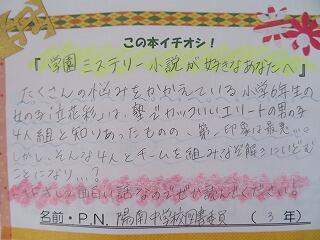 この本イチオシ！
『学園ミステリー小説が好きなあなたへ』
たくさんの悩みをかかえている小学6年生の
女の子立花彩は、塾でカッコいいエリートの男の子
4人組と知りあったものの、第一印象は最悪…。
しかし、そんな4人とチームを組みなぞ解きにいどむ
ことになり…？
面白い話なのでぜひ読んでください。
名前・P.N. 陽南中学校図書委員 （3年）